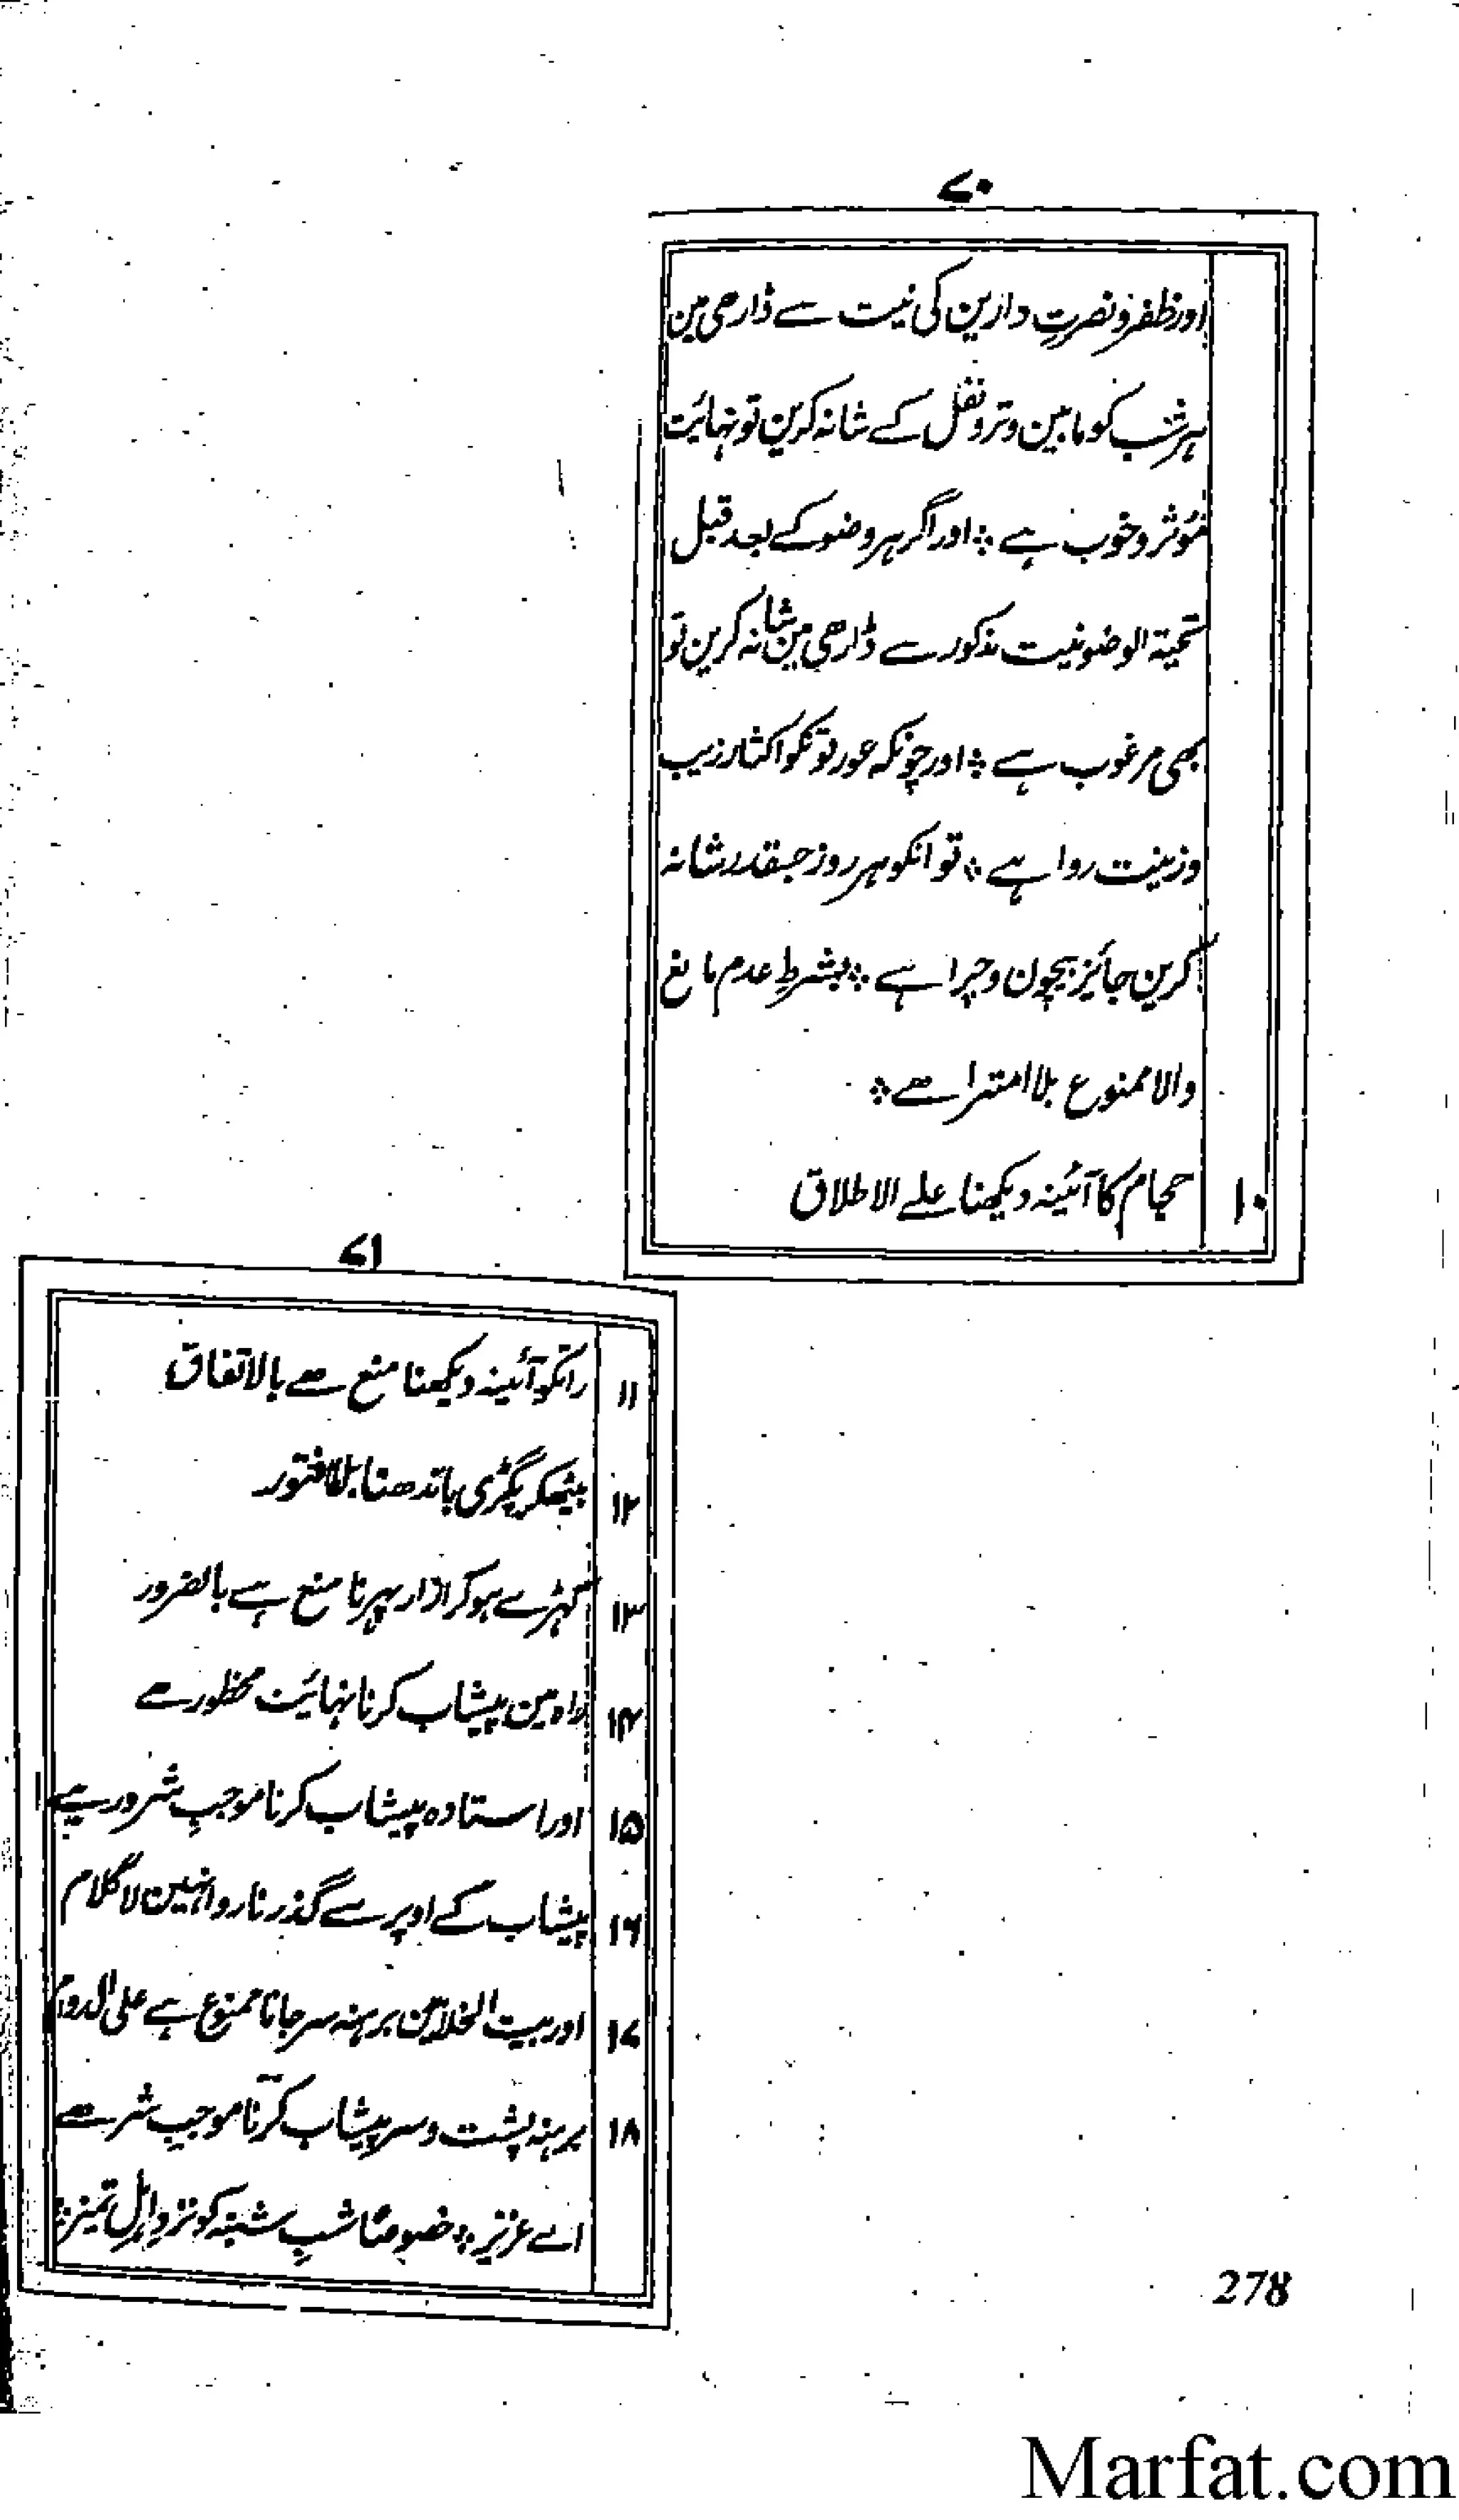 ۷۰
اور ظفر و نصرتِ دارین کی نیت سے ڈارھی مین
ہر شب کو مابین وتر و نفل کے شانہ کرین تو نہائیت
مؤثر و خوب ہے ⁘ اور اگر ہر وضو کے بعد قبل
تحیۃ الوضو نیت مذکور سے ڈارھی مین شانہ کرین تو
بھی مرغوب ہے ⁘ اور چونکہ عورتونکو اکثار زیب
و زینت روا ہے ⁘ تو انکو ہر روز جسقدر شانہ
کرین جائیز بیچون و چرا ہے ⁘ بشرطِ عدم مانع
والا ممنوع بلا امترا ہے ⁘
۱۰ حجام کا آئینہ دیکھنا علے الاطلاق
۷۱
۱۱ راتکو آئینہ دیکھنا منع ہے بالاتفاق
۱۲ بیٹھکر پگڑی باندھنا بلا فتور
۱۳ کہڑے ہو کر ازار پہرنا منع ہے بالضرور
۱۴ راہ مین پیشاب کرنا نہائیت محظور ہے
۱۵ اور استادہ پیشاب کرنا موجبِ شرور ہے
۱۶ پیشاب کے اوپر سے گذرنا روا نہین لا کلام
۱۷ اور بیت الخلا مین برہنہ سر جانا ممنوع ہے علی الدوام
۱۸ برہنہ پشت و سر پیشاب کرنا موجبِ شر ہے
اے عزیز ⁘ خصوصًا شبِ شنبہ کو نزدِ اہلِ تمیز ⁘
278
Marfat.com